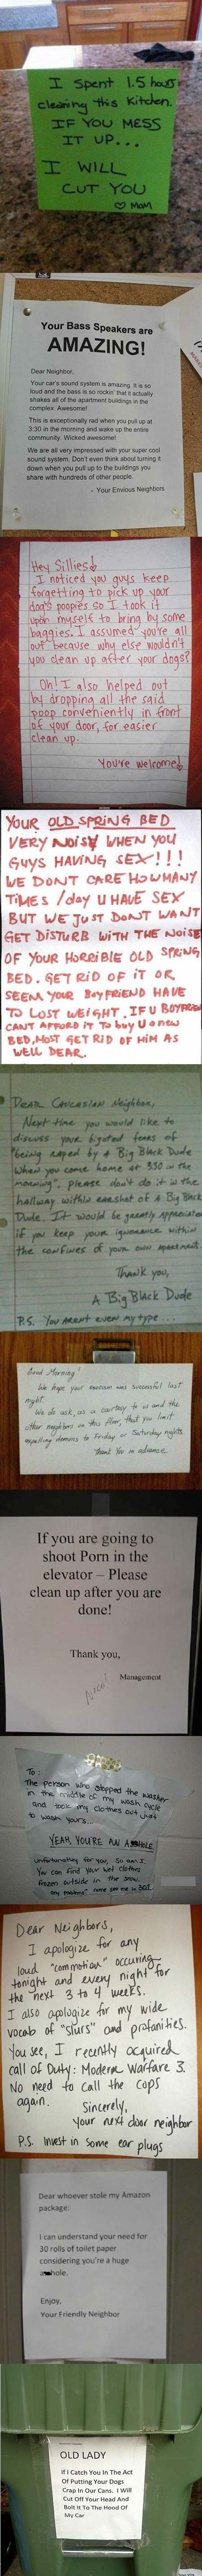 I spent 1.5 hours
cleaning this kitchen.
IF YOU MESS
IT UP...
I WILL
CUT YOU
♡ Mom
Your Bass Speakers are
AMAZING!
Dear Neighbor,
Your car's sound system is amazing. It is so
loud and the bass is so rockin' that it actually
shakes all of the apartment buildings in the
complex. Awesome!
This is exceptionally rad when you pull up at
3:30 in the morning and wake up the entire
community. Wicked awesome!
We are all very impressed with your super cool
sound system. Don't even think about turning it
down when you pull up to the buildings you
share with hundreds of other people.
- Your Envious Neighbors
Hey Sillies!
I noticed you guys keep
forgetting to pick up your
dog's poopies so I took it
upon myself to bring by some
baggies. I assumed you're all
out because why else wouldn't
you clean up after your dogs?
Oh! I also helped out
by dropping all the said
poop conveniently in front
of your door, for easier
clean up.
You're welcome!
YOUR OLD SPRING BED
VERY NOISY WHEN YOU
GUYS HAVING SEX!!!
WE DONT CARE HOW MANY
TIMES /day U HAVE SEX
BUT WE JUST DONT WANT
GET DISTURB WITH THE NOISE
OF YOUR HORRIBLE OLD SPRING
BED. GET RID OF IT OR
SEEM YOUR BOYFRIEND HAVE
TO LOST WEIGHT. IF U BOYFRIEND
CANT AFFORD IT TO buy U a new
BED, MOST GET RID OF HIM AS
WELL DEAR.
DEAR CAUCASIAN Neighbor,
Next time you would like to
discuss your bigoted fears of
"being raped by a Big Black Dude
when you come home at 330 in the
morning", please don't do it in the
hallway within earshot of A Big Black
Dude. It would be greatly appreciated
if you keep your ignorance within
the confines of your own apartment.
Thank you,
A Big Black Dude
P.S. You aren't even my type...
Good Morning!
We hope your exorcism was successful last
night.
We do ask, as a courtesy to us and the
other neighbors on this floor, that you limit
expelling demons to Friday or Saturday nights.
Thank You in advance
If you are going to
shoot Porn in the
elevator – Please
clean up after you are
done!
Thank you,
Management
Nice!
To:
The person who stopped the washer
in the middle of my wash cycle
and took my clothes out just
to wash yours...
YEAH, YOU'RE AN A HOLE
Unfortunately for you, so am I.
You can find your wet clothes
frozen outside in the snow.
Any problems? come see me in 302
Dear Neighbors,
I apologize for any
loud "commotion" occuring
tonight and every night for
the next 3 to 4 weeks.
I also apologize for my wide
vocab of "slurs" and profanities.
You see, I recently acquired
Call of Duty: Modern Warfare 3.
No need to call the cops
again.
Sincerely,
Your next door neighbor
P.S. Invest in some ear plugs
Dear whoever stole my Amazon
package:
I can understand your need for
30 rolls of toilet paper
considering you're a huge
a hole.
Enjoy,
Your Friendly Neighbor
OLD LADY
If I Catch You In The Act
Of Putting Your Dogs
Crap In Our Cans. I Will
Cut Off Your Head And
Bolt It To The Hood Of
My Car